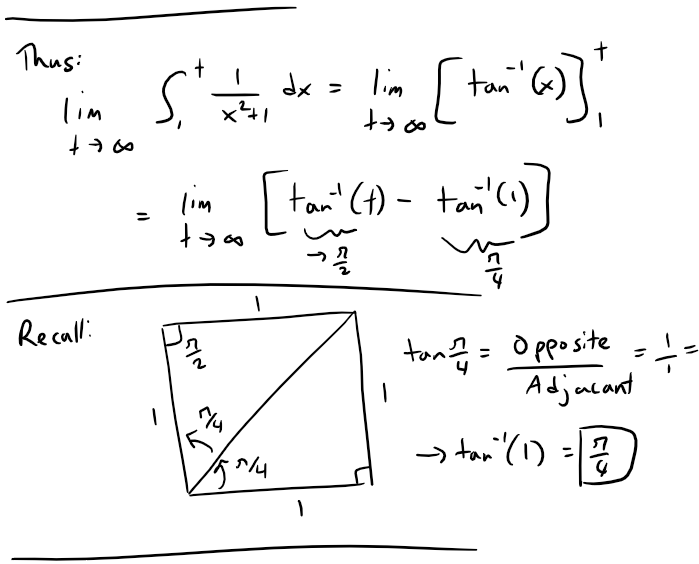 Thus:
lim t→∞ ∫₁ᵗ 1/(x²+1) dx = lim t→∞ [tan⁻¹(x)]₁ᵗ
= lim t→∞ [tan⁻¹(t) - tan⁻¹(1)]
→ π/2
π/4
Recall:
1
π/2
tan π/4 = Opposite/Adjacant = 1/1 =
1
π/4
1
π/4
→ tan⁻¹(1) = π/4
1